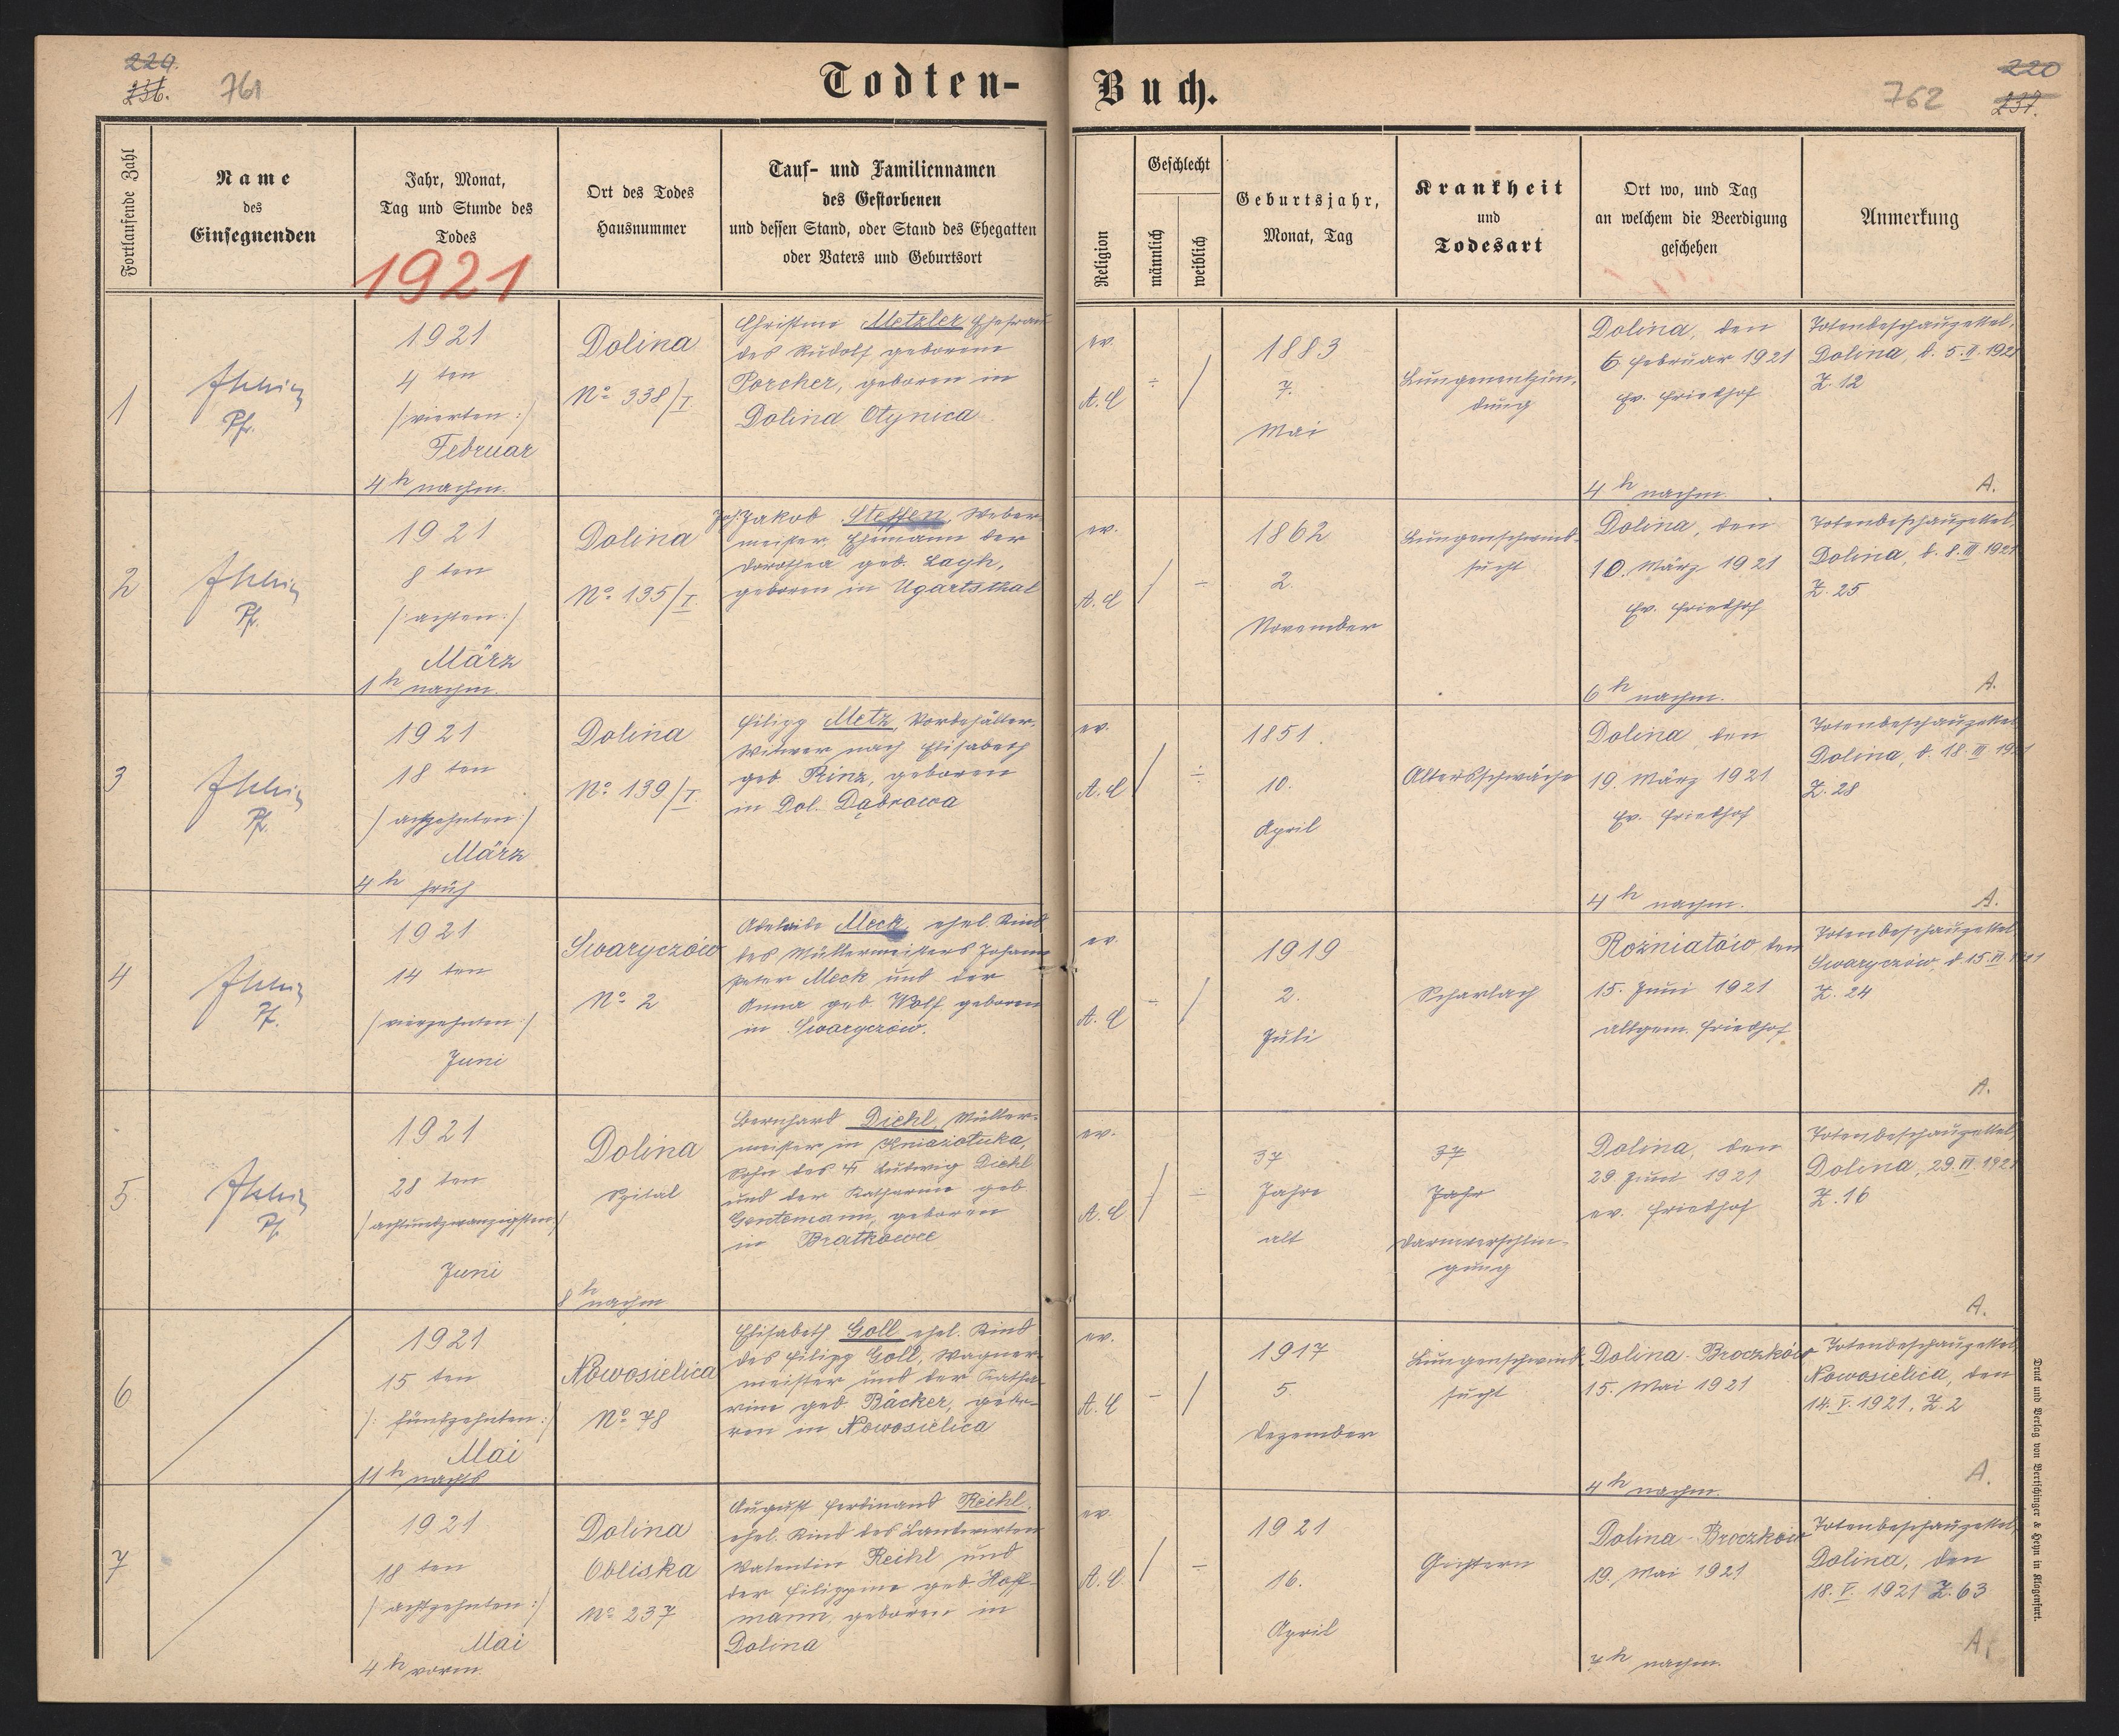 229.
236.
761
Todten-
Fortlaufende Zahl
Name
des
Einsegnenden
Jahr, Monat,
Tag und Stunde des
Todes
1921
Ort des Todes
Hausnummer
Tauf- und Familiennamen
des Gestorbenen
und dessen Stand, oder Stand des Ehegatten
oder Vaters und Geburtsort
1
Pfr.
1921
4 ten
/vierten:/
Februar
4 h nachm.
Dolina
No 338/I.
Christine Metzler Ehefrau
des Rudolf geborene
Porcher, geboren in
Dolina Otynica
2
Pfr.
1921
8 ten
/:achten:/
März
1 h nachm.
Dolina
No. 135/I.
Joh. Jakob Steffen, Weber-
meister, Ehemann der
Dorothea geb.
geboren in Ugartsthal
3
Pf.
1921
18 ten
/achtzehnten:/
März
4 h früh
Dolina
No. 139/I.
Filipp Metz, Vorbehälter,
Witwer nach Elisabeth
geb. Rinz, geboren
in Dol. Dąbrowa
4
Pf.
1921
14 ten
/vierzehnten:/
Juni
Swaryczów
No. 2
Adelaide Meck, ehel. Kind
des Müllermeisters Johann
Peter Meck und der
Anna geb. Wolf geboren
in Swaryczów.
5
Pf.
1921
28 ten
/achtundzwanzigsten:/
Juni
Dolina
Spital
8 h nachm
Bernhard Diehl, Müller-
meister in Kniaziołuka,
Sohn des Ludwig Diehl
und der Katharine geb.
Gentemann, geboren
in Bratkowce
6
1921
15 ten
/: fünfzehnten:/
Mai
11 h nachts
Nowosielica
No. 78
Elisabeth Goll ehel. Kind
des Filipp Goll, Wagner-
meister und der Katha-
rine geb. Bäcker, gebo-
ren in Nowosielica
7
1921
18 ten
/achtzehnten:/
Mai
4 h vorm.
Dolina
Obliska
No. 237
August Ferdinand Reichl.
ehel. Kind des Landwirten
Valentin Reichl und
der Filippine geb. Hoff-
mann, geboren in
Dolina
Buch.
762
220
237.
Religion
Geschlecht
männlich
weiblich
Geburtsjahr,
Monat, Tag
Krankheit
und
Todesart
Ort wo, und Tag
an welchem die Beerdigung
geschehen
Anmerkung
ev.
A. C
÷
/
1883
7.
Mai
Lungenentzün-
dung
Dolina, den
6. Februar 1921
Ev. Friedhof
4 h nachm.
Totenbeschauzettel,
Dolina, d. 5. II. 1921
Z. 12
A.
ev.
A. C
/
÷
1862
2.
November
Lungenschwind-
sucht
Dolina, den
10. März 1921
Ev. Friedhof
6 h nachm.
Totenbeschauzettel,
Dolina, d. 8. III 1921
Z. 25
A.
ev.
A. C
/
÷
1851.
10.
April
Altersschwäche
Dolina den
19. März 1921
Ev. Friedhof
4 h nachm.
Totenbeschauzettel
Dolina, d. 18. III 1921
Z. 28
A.
ev.
A. C
÷
/
1919
2.
Juli
Scharlach
Rożniatów, den
15. Juni 1921
allgem. Friedhof
Totenbeschauzettel
Swaryczów, d. 15. VI. 1921
Z. 24
A.
ev.
A. C
/
÷
37
Jahre
alt
37
Jahr
Darmverschlin-
gung
Dolina, den
29 Juni 1921
ev. Friedhof
Totenbeschauzettel,
Dolina, 29. VI. 1921
Z. 16
A.
ev.
A. C
÷
/
1917
5.
Dezember
Lungenschwind-
sucht
Dolina-Broczków
15. Mai 1921
4 h nachm.
Totenbeschauzettel
Nowosielica, den
14. V. 1921, Z. 2
A.
ev.
A. C.
/
÷
1921
16.
April
Dolina-Broczków
19. Mai 1921
7 h nachm.
Totenbeschauzettel,
Dolina, den
18. V. 1921 Z. 63
A.
Druck und Verlag von Bertschinger & Heyn in Klagenfurt.